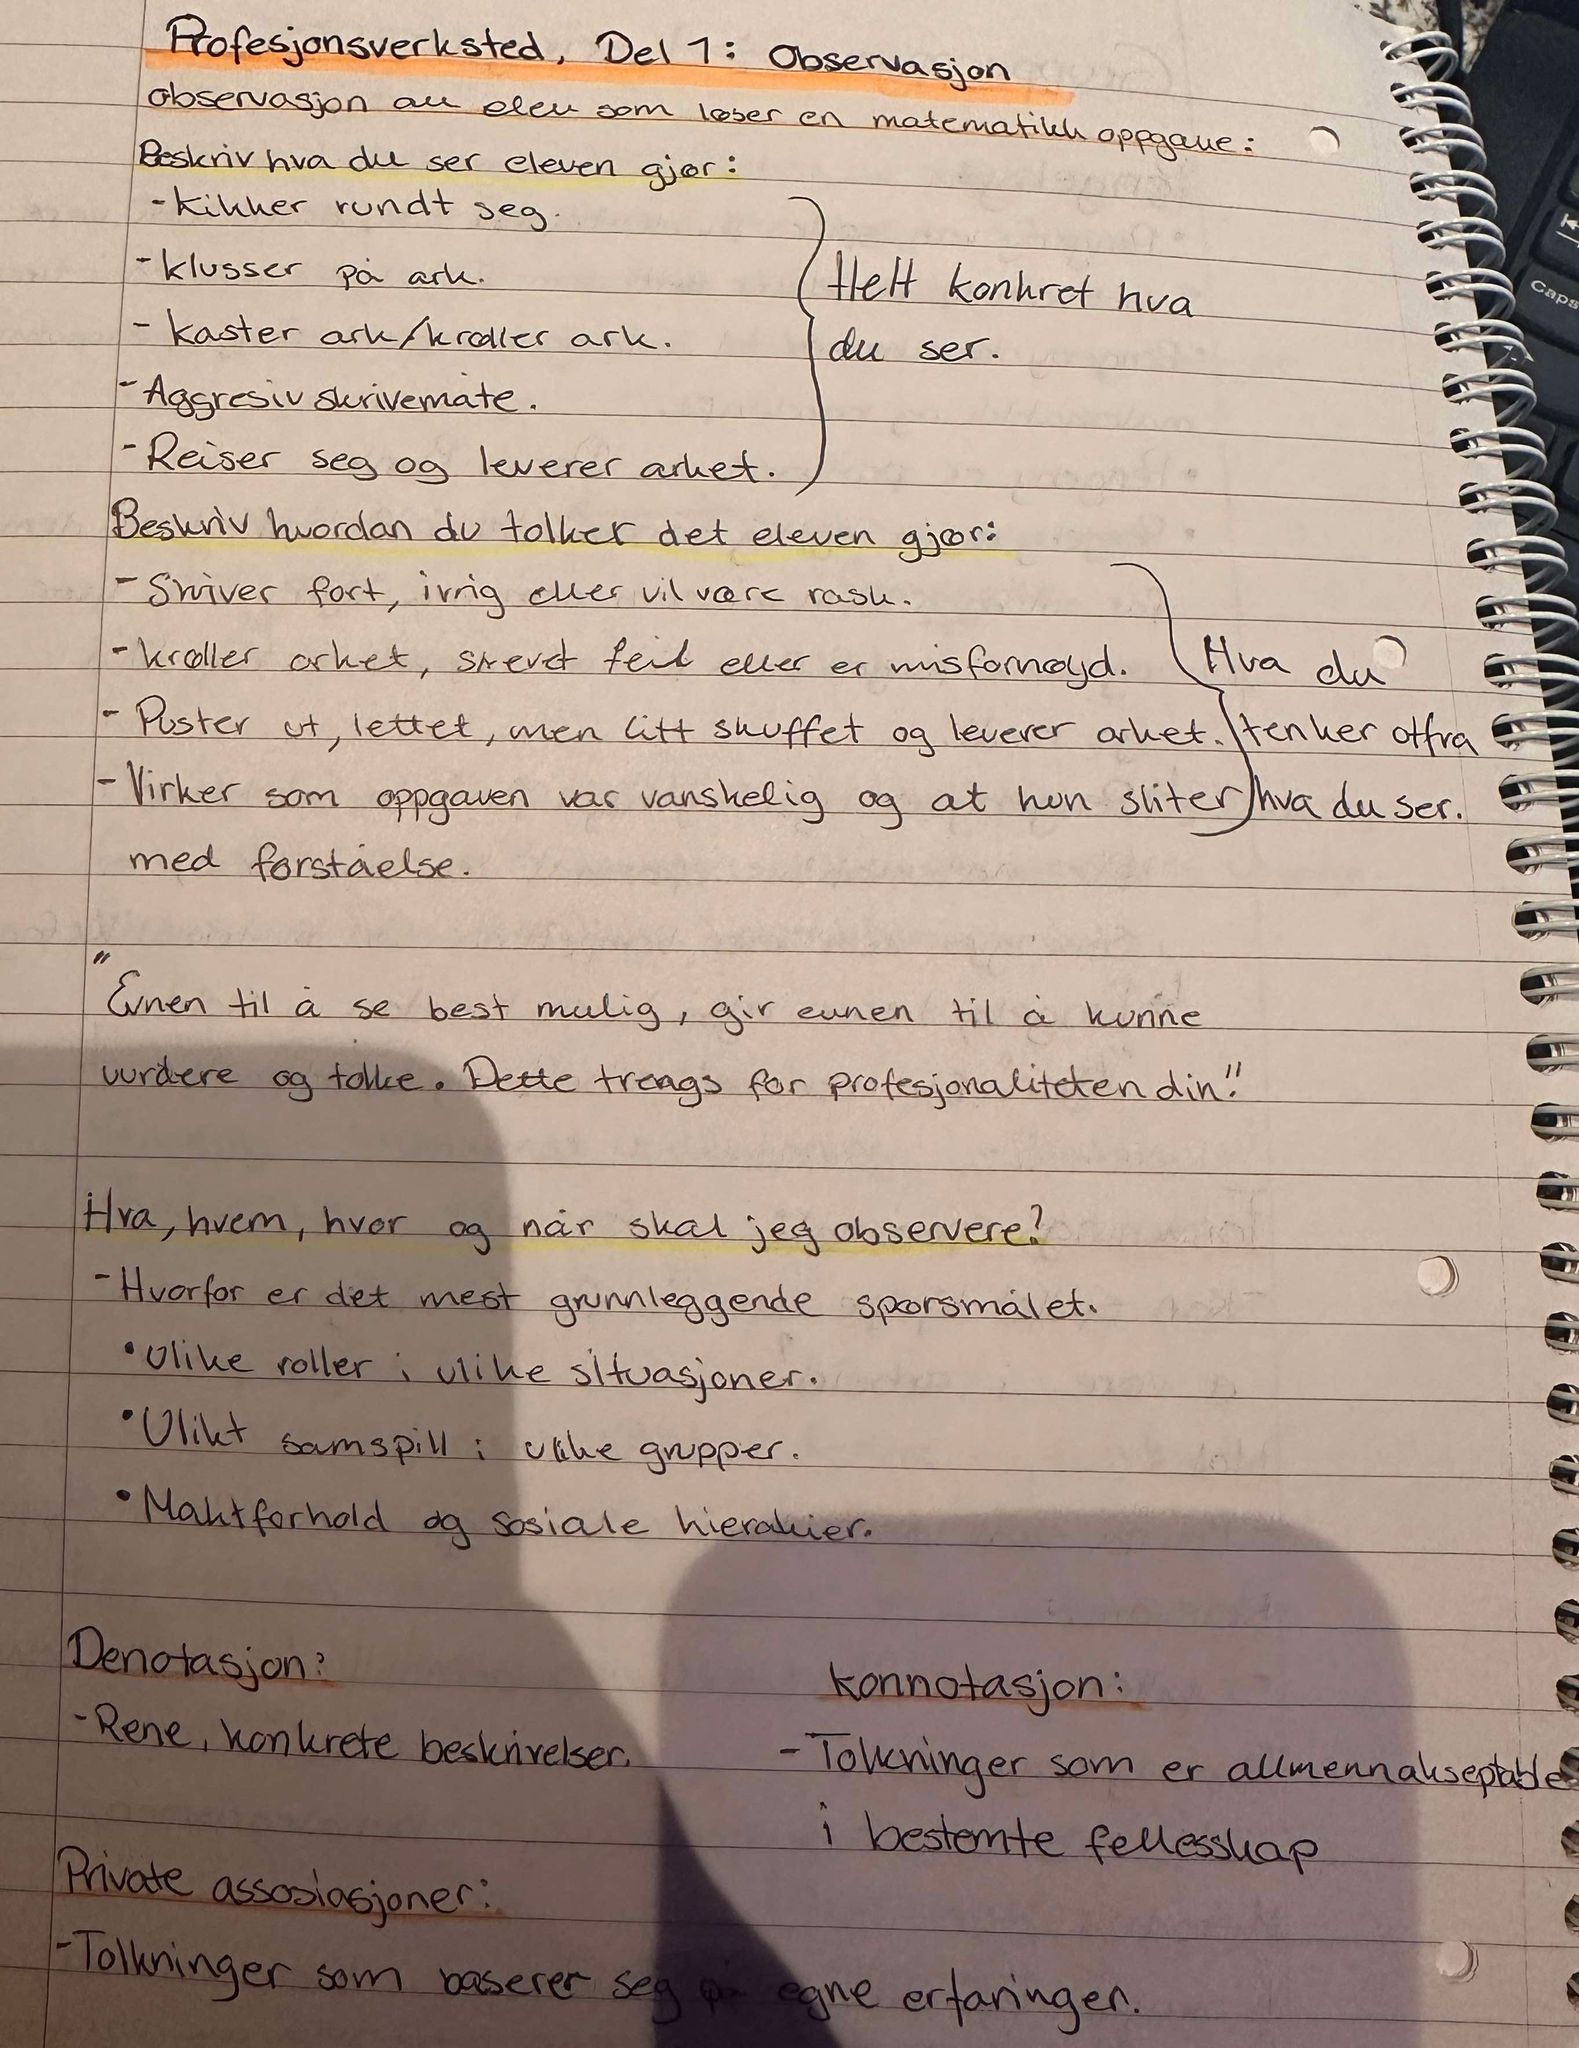 Profesjonsverksted, Del 1: Observasjon
observasjon av elev som løser en matematikk oppgave:
Beskriv hva du ser eleven gjør:
- kikker rundt seg.
- klusser på ark.
- kaster ark/krøller ark.
- Aggresiv skrivemåte.
- Reiser seg og leverer arket.
Helt konkret hva
du ser.
Beskriv hvordan du tolker det eleven gjør:
- Skriver fort, ivrig eller vil være rask.
- krøller arket, skrevet feil eller er misfornøyd.
- Puster ut, lettet, men litt skuffet og leverer arket.
- Virker som oppgaven var vanskelig og at hun sliter
med forståelse.
Hva du
tenker utfra
hva du ser.
"Evnen til å se best mulig, gir evnen til å kunne
vurdere og tolke. Dette trengs for profesjonaliteten din."
Hva, hvem, hvor og når skal jeg observere?
- Hvorfor er det mest grunnleggende spørsmålet.
• Ulike roller i ulike situasjoner.
• Ulikt samspill i ulike grupper.
• Maktforhold og sosiale hierakier.
Denotasjon:
- Rene, konkrete beskrivelser.
konnotasjon:
- Tolkninger som er allmennakseptable
i bestemte fellesskap
Private assosiasjoner:
- Tolkninger som baserer seg på egne erfaringer.
Caps